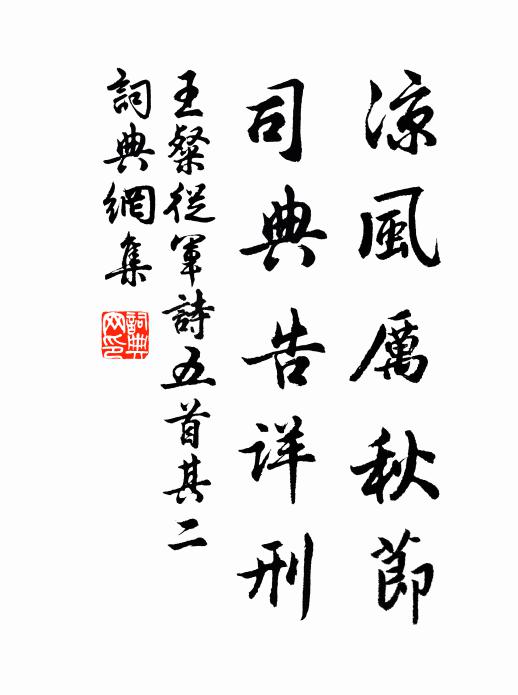 凉風厲秋節
司典告详刑
王粲從軍詩五首其二
詞典網集
詞典网印